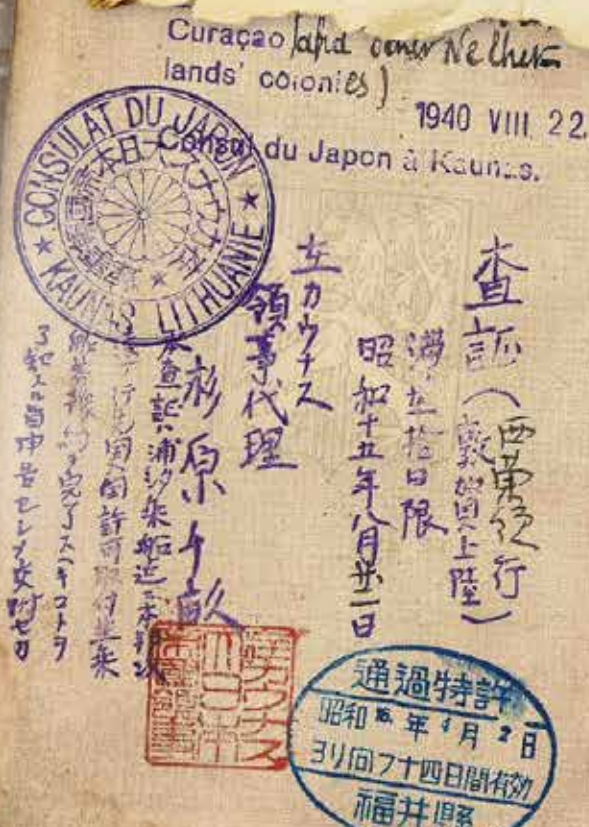 Curaçao (and other Nether-
lands' colonies)
1940 VIII 22.
Consul du Japon à Kaunas.
CONSULAT DU JAPON ★ KAUNAS LITHUANIE ★
査証(
行
敦賀上陸)
滞在拾日限
昭和十五年八月
在カウナス
領事代理
杉原千畝
本査証ハ浦汐乗船迄ニ本邦以
遠ノ行先国入国許可取付並乗
ヲ完了スヘキコトヲ
旨申告セシメ交附セリ
通過特許
昭和16年4月2日
ヨリ向フ十四日間有効
福井縣